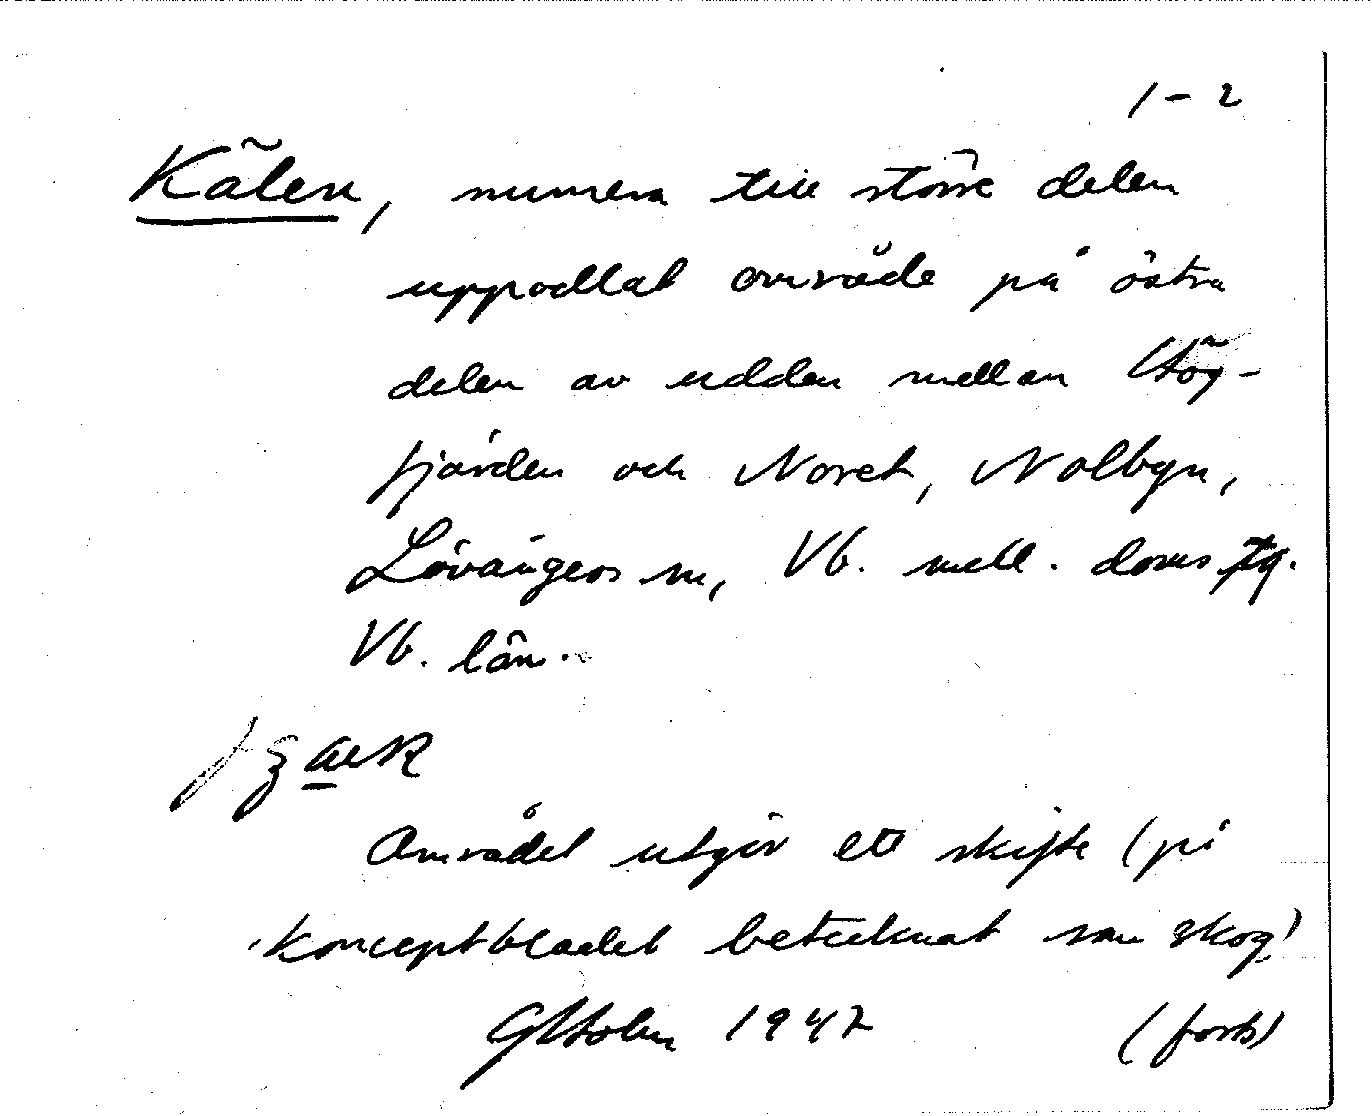 1-2
Kålen, numera till större delen
uppodlat område på östra
delen av udden mellan Hög-
fjärden och Noret, Nolbyn,
Lövångers sn, Vb. mell. doms fg.
Vb. län.
Området utgör ett skifte (på
konceptbladet betecknat som skog)
GHolm 1947 (forts)